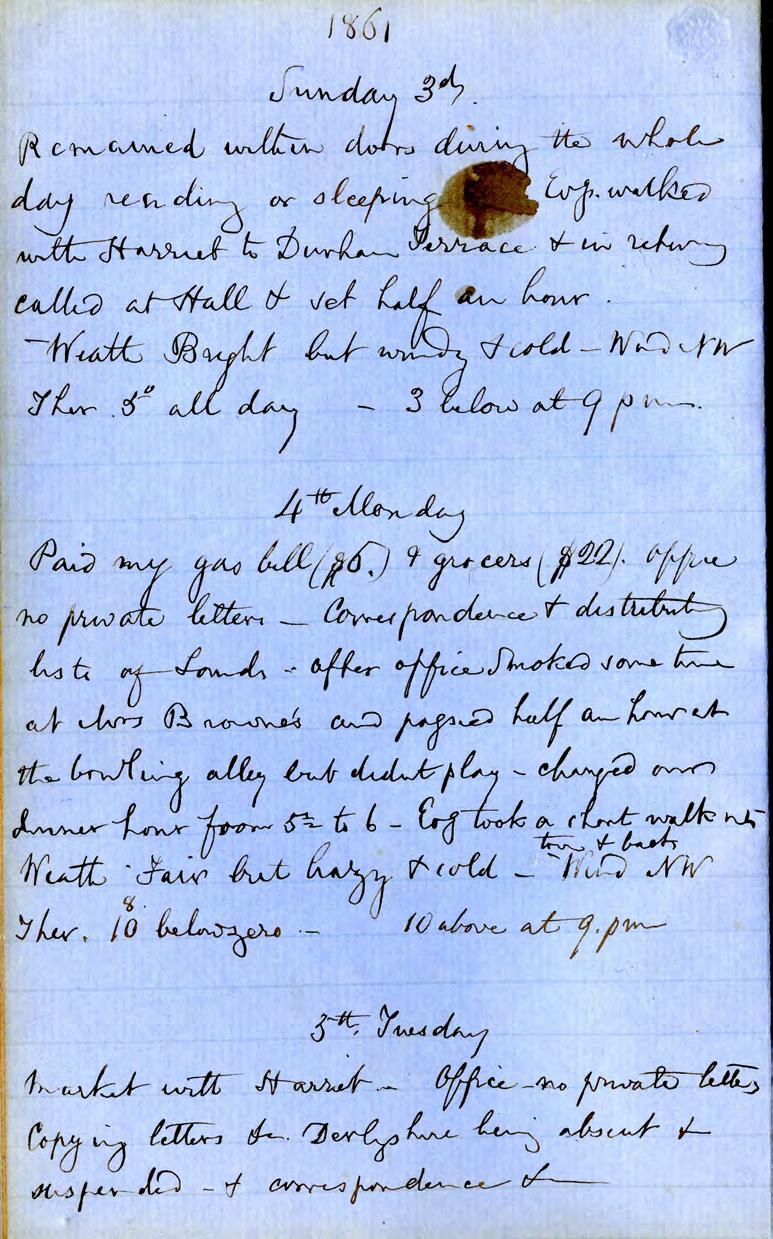 1861
Sunday 3d.
Remained within doors during the whole
day reading or sleeping Evg. walked
with Harriet to Durham Terrace & in returng
called at Hall & set half an hour.
Weath Bright but windy & cold - Wind NW
Ther. 5° all day - 3 below at 9 pm.
4th Monday
Paid my gas bill ($6.) & grocers ($22). Office
no private letters - Correspondence & distributg
lists of Lands - after office smoked some time
at Mrs Browne's and passed half an hour at
the bowling alley but didnt play - changed our
dinner hour from 5½ to 6 - Evg took a short walk into
town & back
Weath Fair but hazy & cold - Wind NW
8
Ther. 10 below zero - 10 above at 9. pm
5th. Tuesday
Market with Harriet - Office - no private letters
Copying letters &c. Derbyshire being absent &
suspended - & correspondence &c